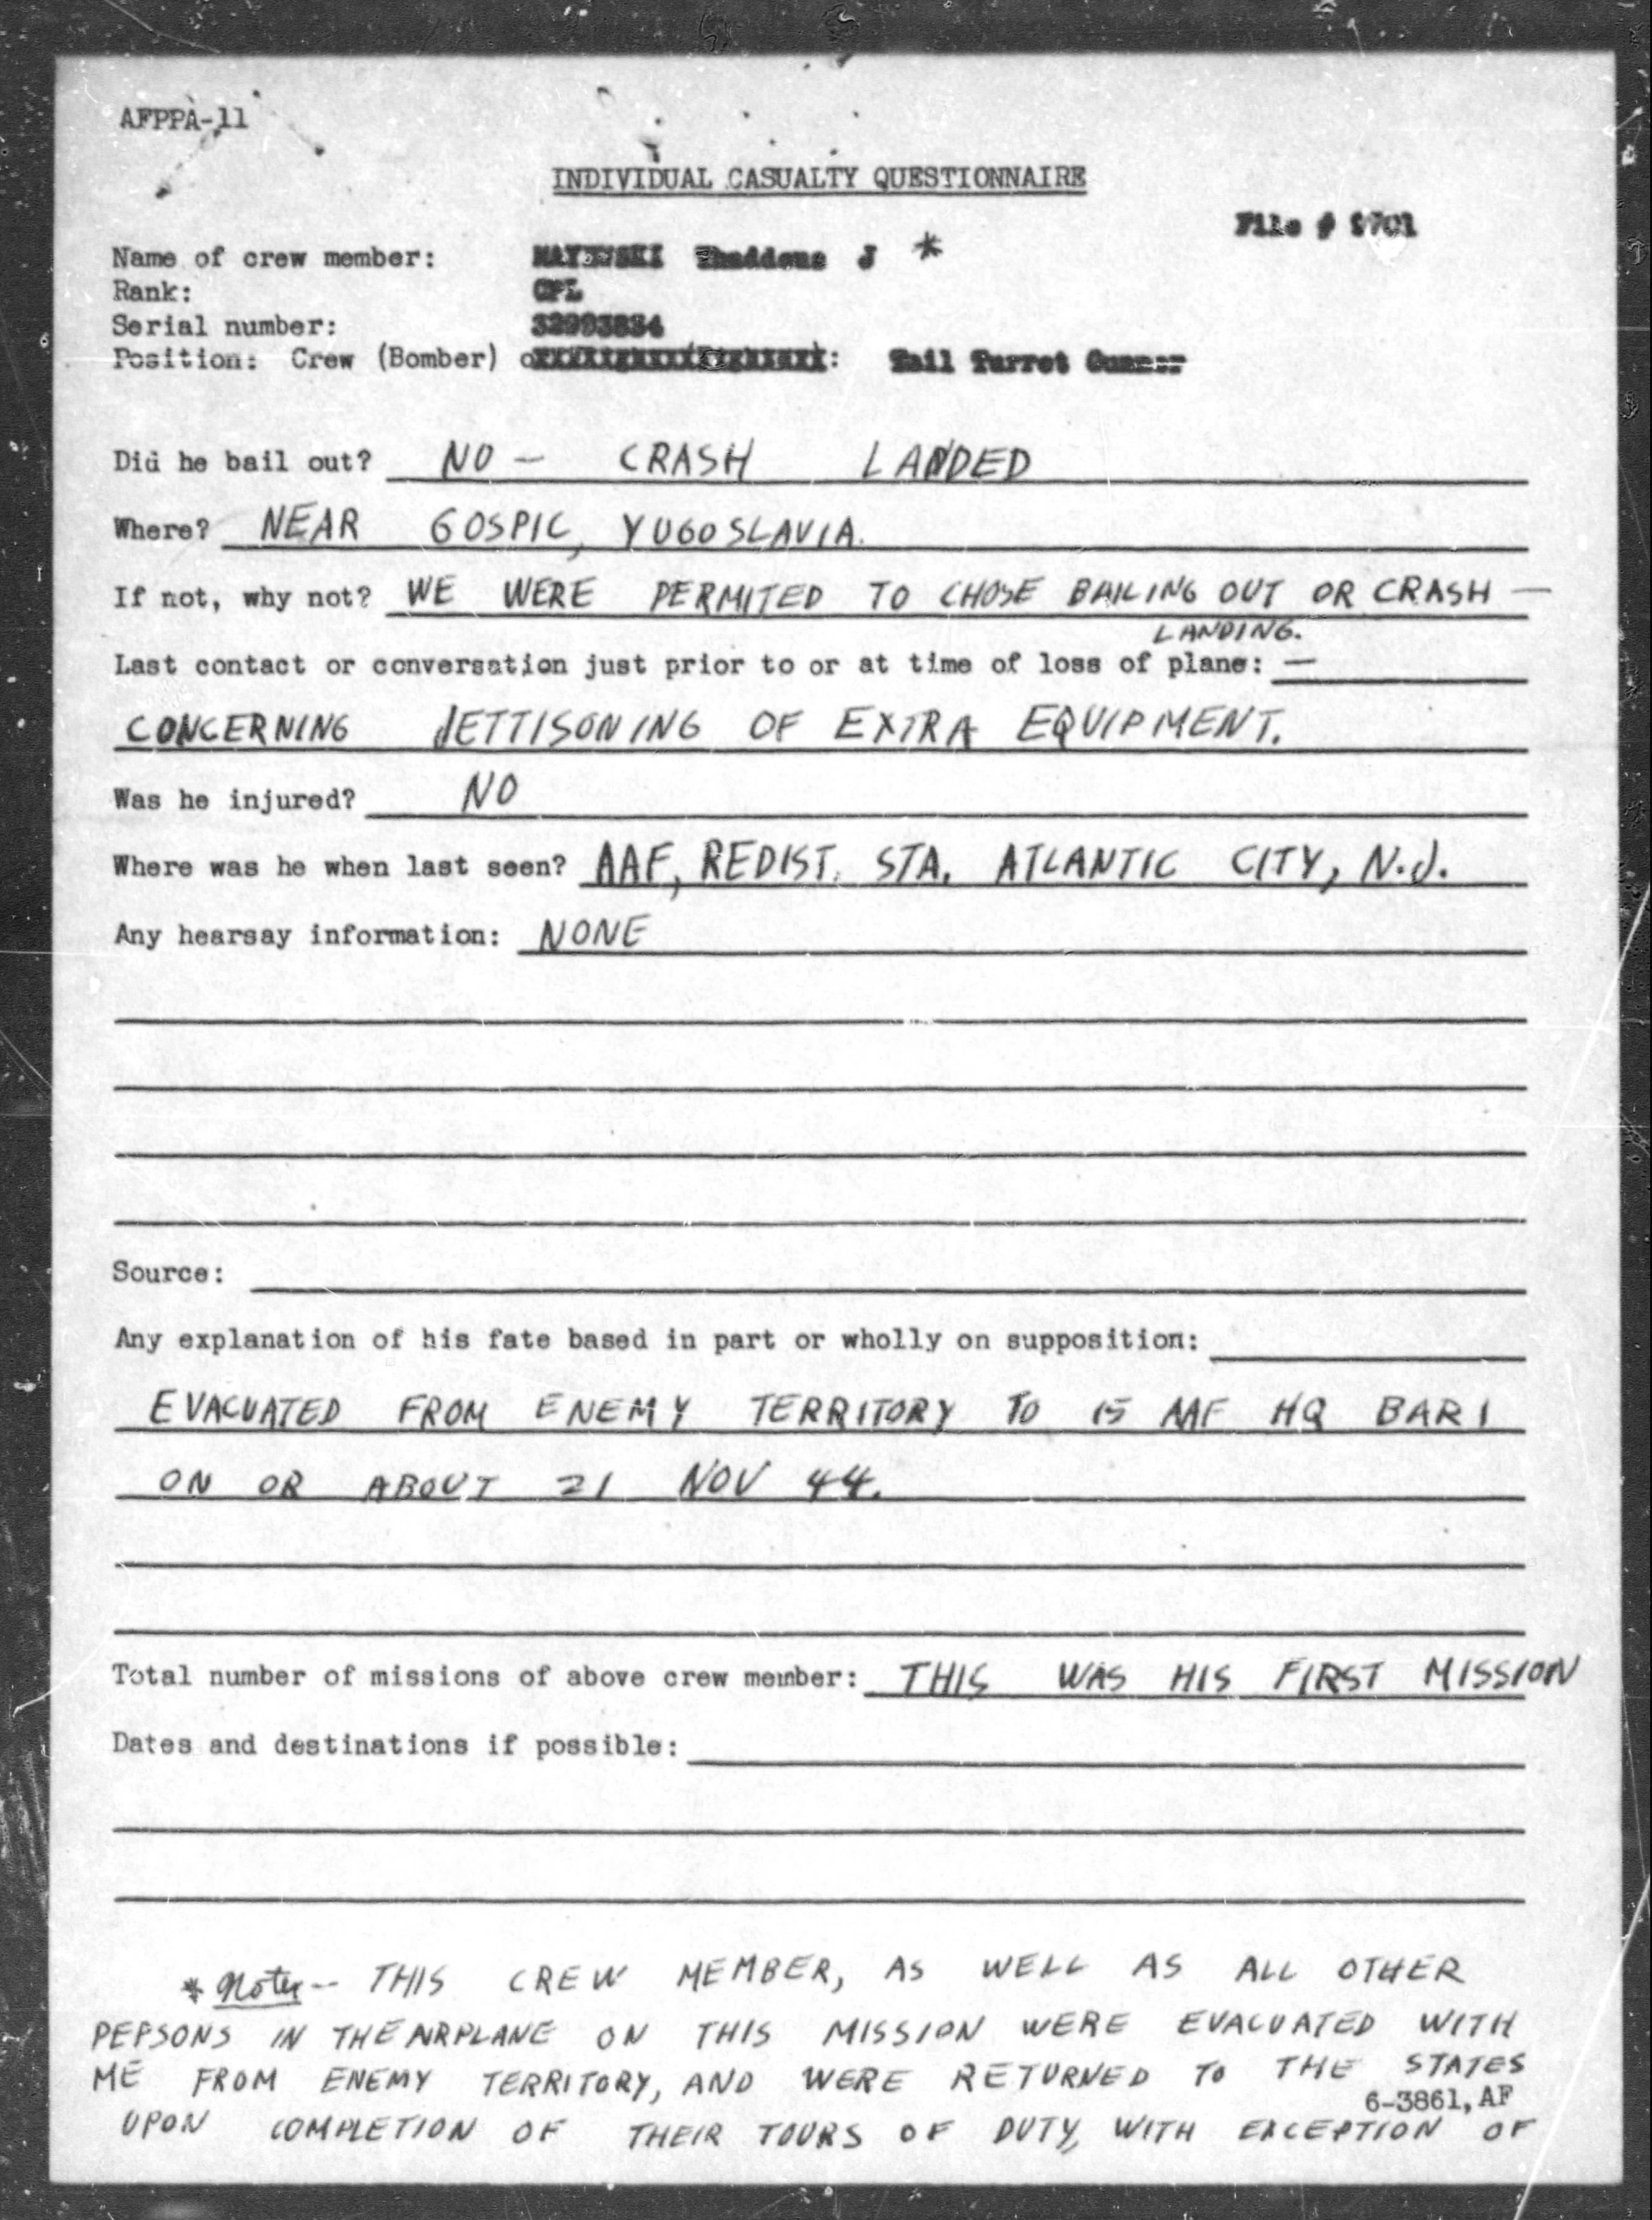 AFPPA-11
INDIVIDUAL CASUALTY QUESTIONNAIRE
File # 9701
Name of crew member: MAYEWSKI Thaddeus J *
Rank: CPL
Serial number: 32993834
Position: Crew (Bomber) o : Tail Turret Gunner
Did he bail out? NO - CRASH LANDED
Where? NEAR GOSPIC, YUGOSLAVIA.
If not, why not? WE WERE PERMITED TO CHOSE BAILING OUT OR CRASH -
LANDING.
Last contact or conversation just prior to or at time of loss of plane: -
CONCERNING JETTISONING OF EXTRA EQUIPMENT.
Was he injured? NO
Where was he when last seen? AAF, REDIST. STA. ATLANTIC CITY, N.J.
Any hearsay information: NONE
Source:
Any explanation of his fate based in part or wholly on supposition:
EVACUATED FROM ENEMY TERRITORY TO 15 AAF HQ BARI
ON OR ABOUT 21 NOV 44.
Total number of missions of above crew member: THIS WAS HIS FIRST MISSION
Dates and destinations if possible:
* Note -- THIS CREW MEMBER, AS WELL AS ALL OTHER
PERSONS IN THE AIRPLANE ON THIS MISSION WERE EVACUATED WITH
ME FROM ENEMY TERRITORY, AND WERE RETURNED TO THE STATES
6-3861, AF
UPON COMPLETION OF THEIR TOURS OF DUTY, WITH EXCEPTION OF